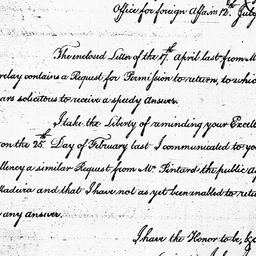 Office for foreign Affairs 12th July
The enclosed Letter of the 17th April last from M
clay contains a Request for Permission to return, to whic
ars solicitous to receive a speedy Answer.
I take the Liberty of reminding your Excell
on the 25th Day of February last I communicated to yo
llency a similar Request from Mr Pintard the public A
Madeira and that I have not as yet been enabled to retu
any answer.
I have the Honor to be, &c